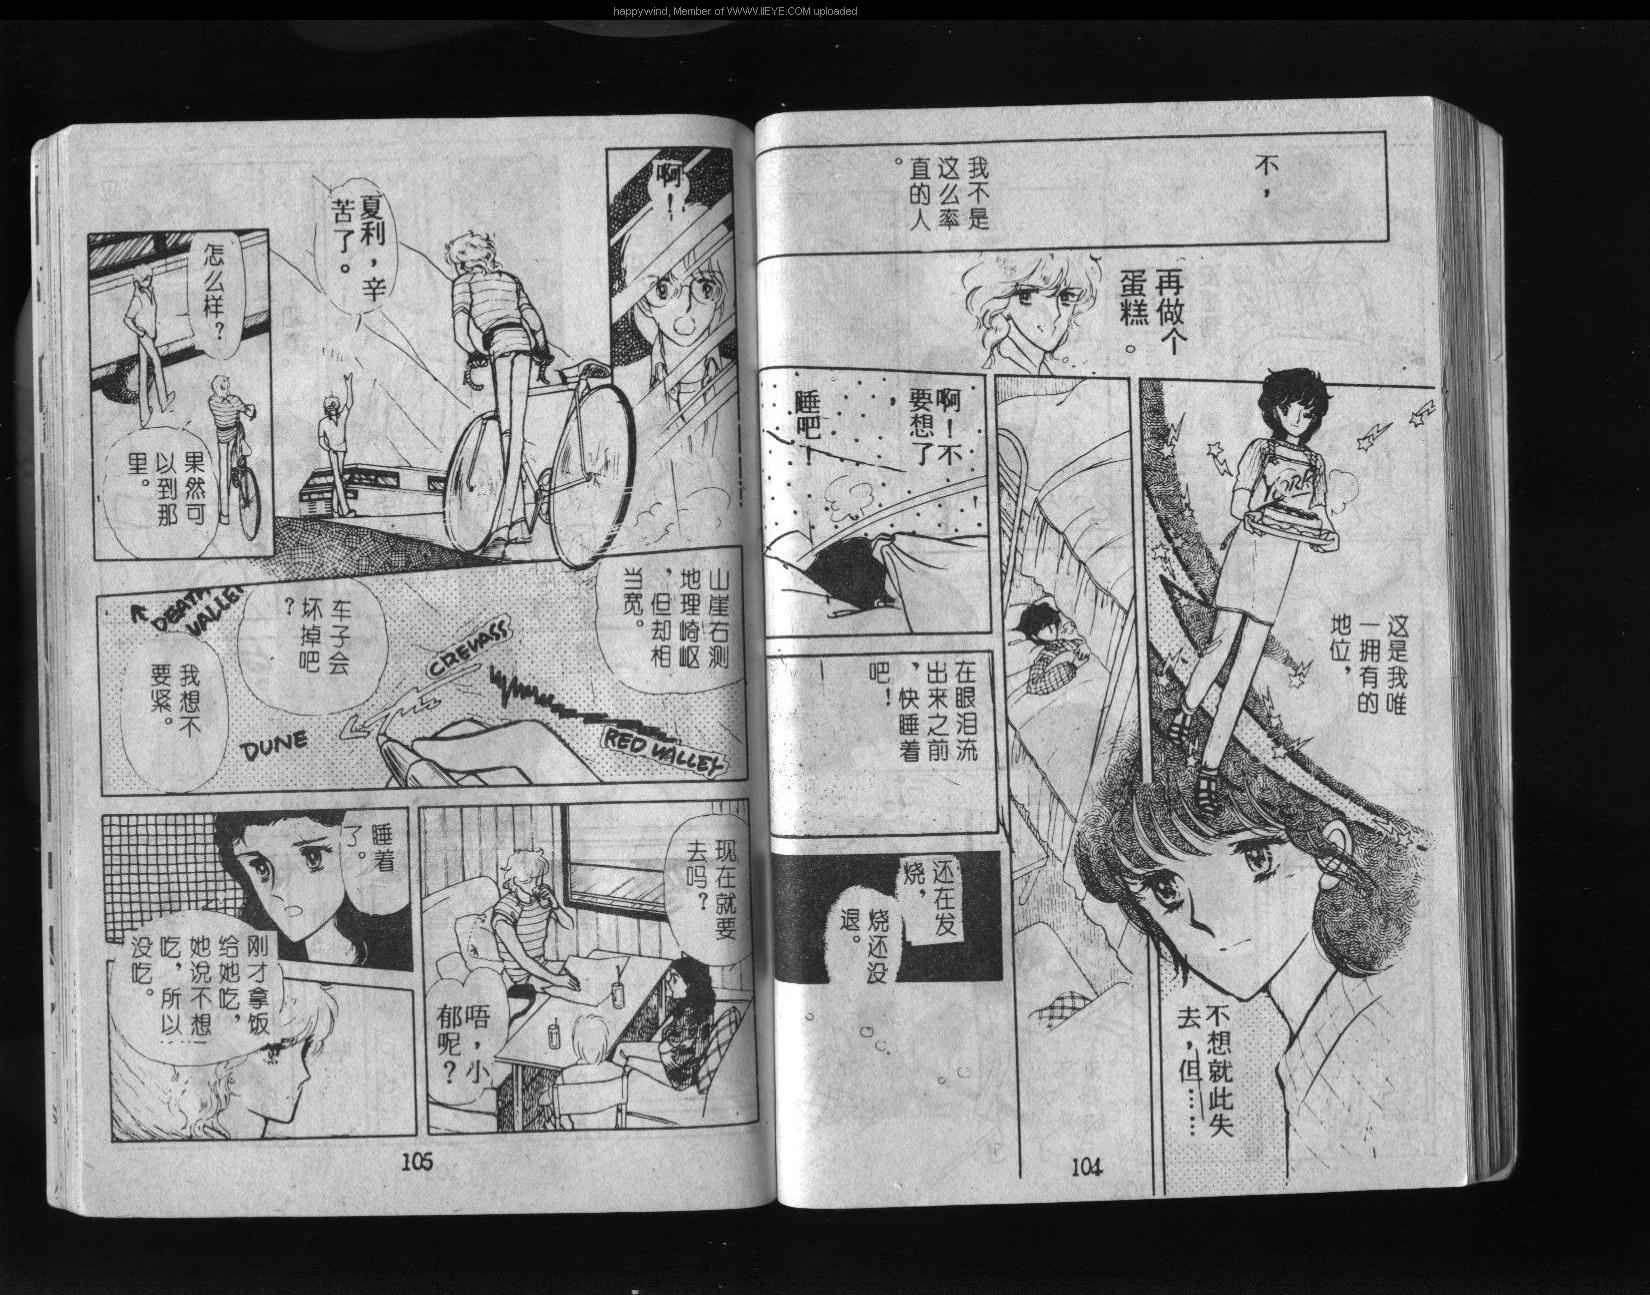 happywind, Member of WWW.IIEYE.COM uploaded
不，
我不是
这么率
直的人
。
再做个
蛋糕。
这是我唯
一拥有的
地位，
不想就此失
去，但……
啊！不
要想了
，
睡吧！
在眼泪流
出来之前
，快睡着
吧！
还在发
烧，
烧还没
退。
104
啊！
夏利，辛
苦了。
怎么样？
果然可
以到那
里。
山崖右测
地理崎岖
，但却相
当宽。
车子会
坏掉吧
？
我想不
要紧。
DEATH
VALLEY
CREVASS
DUNE
RED VALLEY
现在就要
去吗？
唔，小
郁呢？
睡着
了。
刚才拿饭
给她吃，
她说不想
吃，所以
没吃。
105